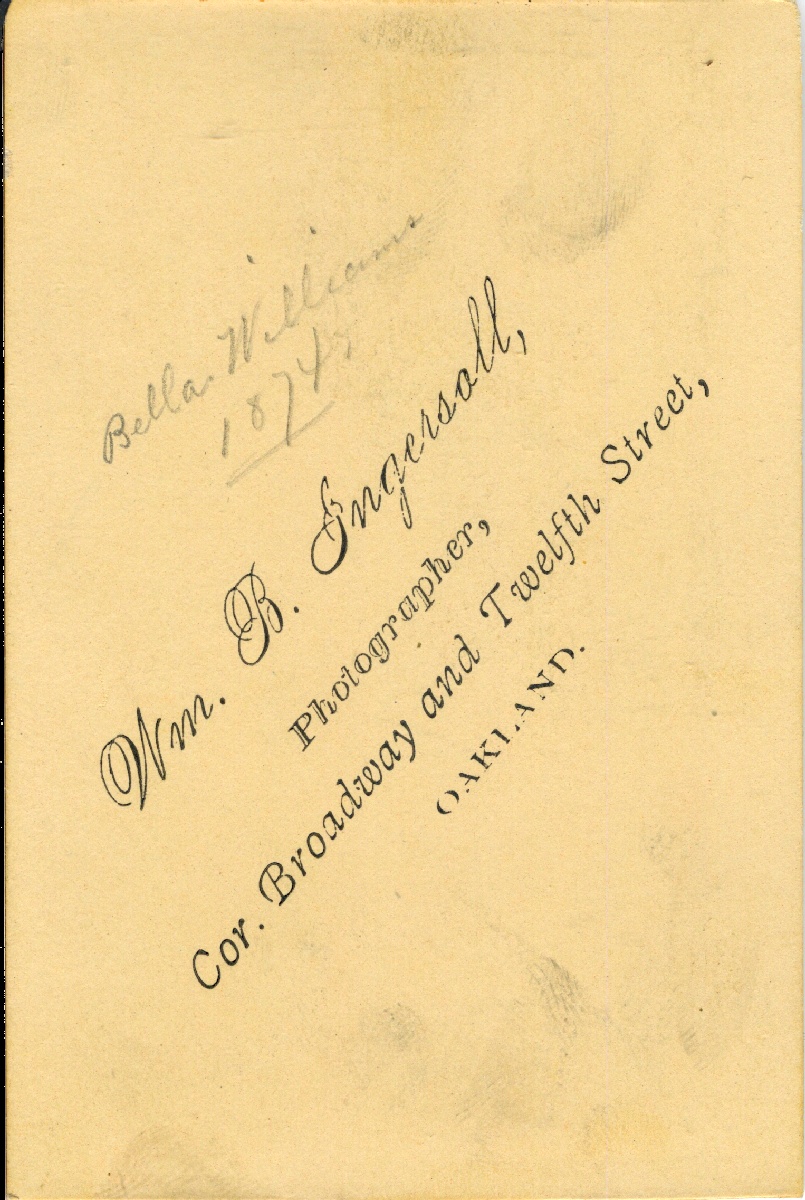 Bella Williams
1874
Wm. B. Ingersoll,
Photographer,
Cor. Broadway and Twelfth Street,
OAKLAND.